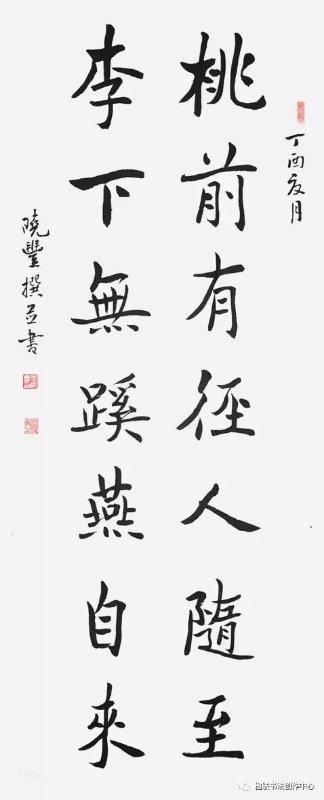 丁酉夏月
桃前有徑人隨至
李下無蹊燕自來
曉豐撰並書
楹联书法创作中心